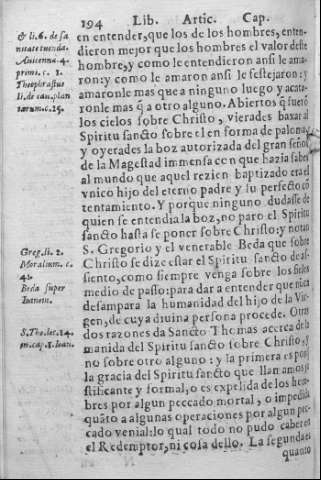 194 Lib. Artic. Cap.
& li. 6. de sa
nitate tuenda.
Auicenna. 4.
primi. c. 1.
Theophrastus
li. de cau. plan
tarum. c. 25.
Greg. li. 2.
Moralium. c.
Beda super
S. Tho. lec. 14.
en entender, que los de los hombres, enten-
dieron mejor que los hombres el valor deste
hombre, y como le entendieron ansi le ama-
ron: y como le amaron ansi le festejaron: y
amaronle mas que a ninguno luego y acata-
ronle mas q̃ a otro alguno. Abiertos q̃ fuerõ
los cielos sobre Christo, vierades baxar al
Spiritu sancto sobre el en forma de paloma,
y oyerades la boz autorizada del gran señor
de la Magestad immensa con que hazia saber
al mundo que aquel rezien baptizado era el
vnico hijo del eterno padre y su perfecto cõ
tentamiento. Y porque ninguno dudasse de
quien se entendia la boz, no paro el Spiritu
sancto hasta se poner sobre Christo: y notan
S. Gregorio y el venerable Beda que sobre
Christo se dize estar el Spiritu sancto de as-
siento, como siempre venga sobre los
medio de passo: para dar a entender que nũca
desampara la humanidad del hijo de la Vir-
gen, de cuya diuina persona procede. Otras
dos razones da Sancto Thomas acerca de la
manida del Spiritu sancto sobre Christo, y
no sobre otro alguno: y la primera es porq̃
la gracia del Spiritu sancto que llaman ju
stificante y formal, o es expelida de los hom-
bres por algun peccado mortal, o impedida
quãto a algunas operaciones por algun pec-
cado venial: lo qual todo no pudo caber en
el Redemptor, ni cosa dello. La segunda es
quanto